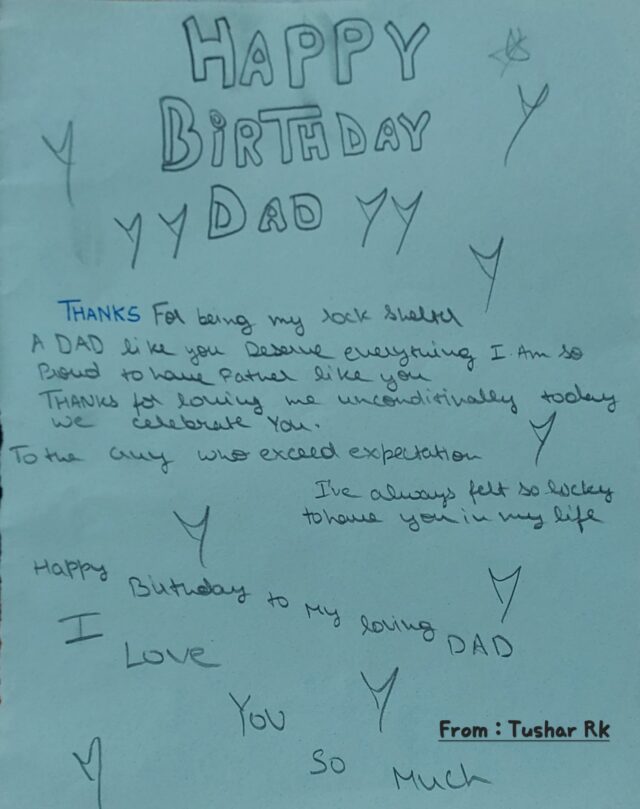 HAPPY
BIRTHDAY
DAD
THANKS For being my rock shelter
A DAD like you Deserve everything I Am so
Proud to have Father like you
THANKS for loving me unconditinally today
we celebrate You.
To the Guy who exceed expectation
I've always felt so lucky
to have you in my life
Happy Birthday to My loving DAD
I
LOVE
YOU
SO
Much
From : Tushar Rk